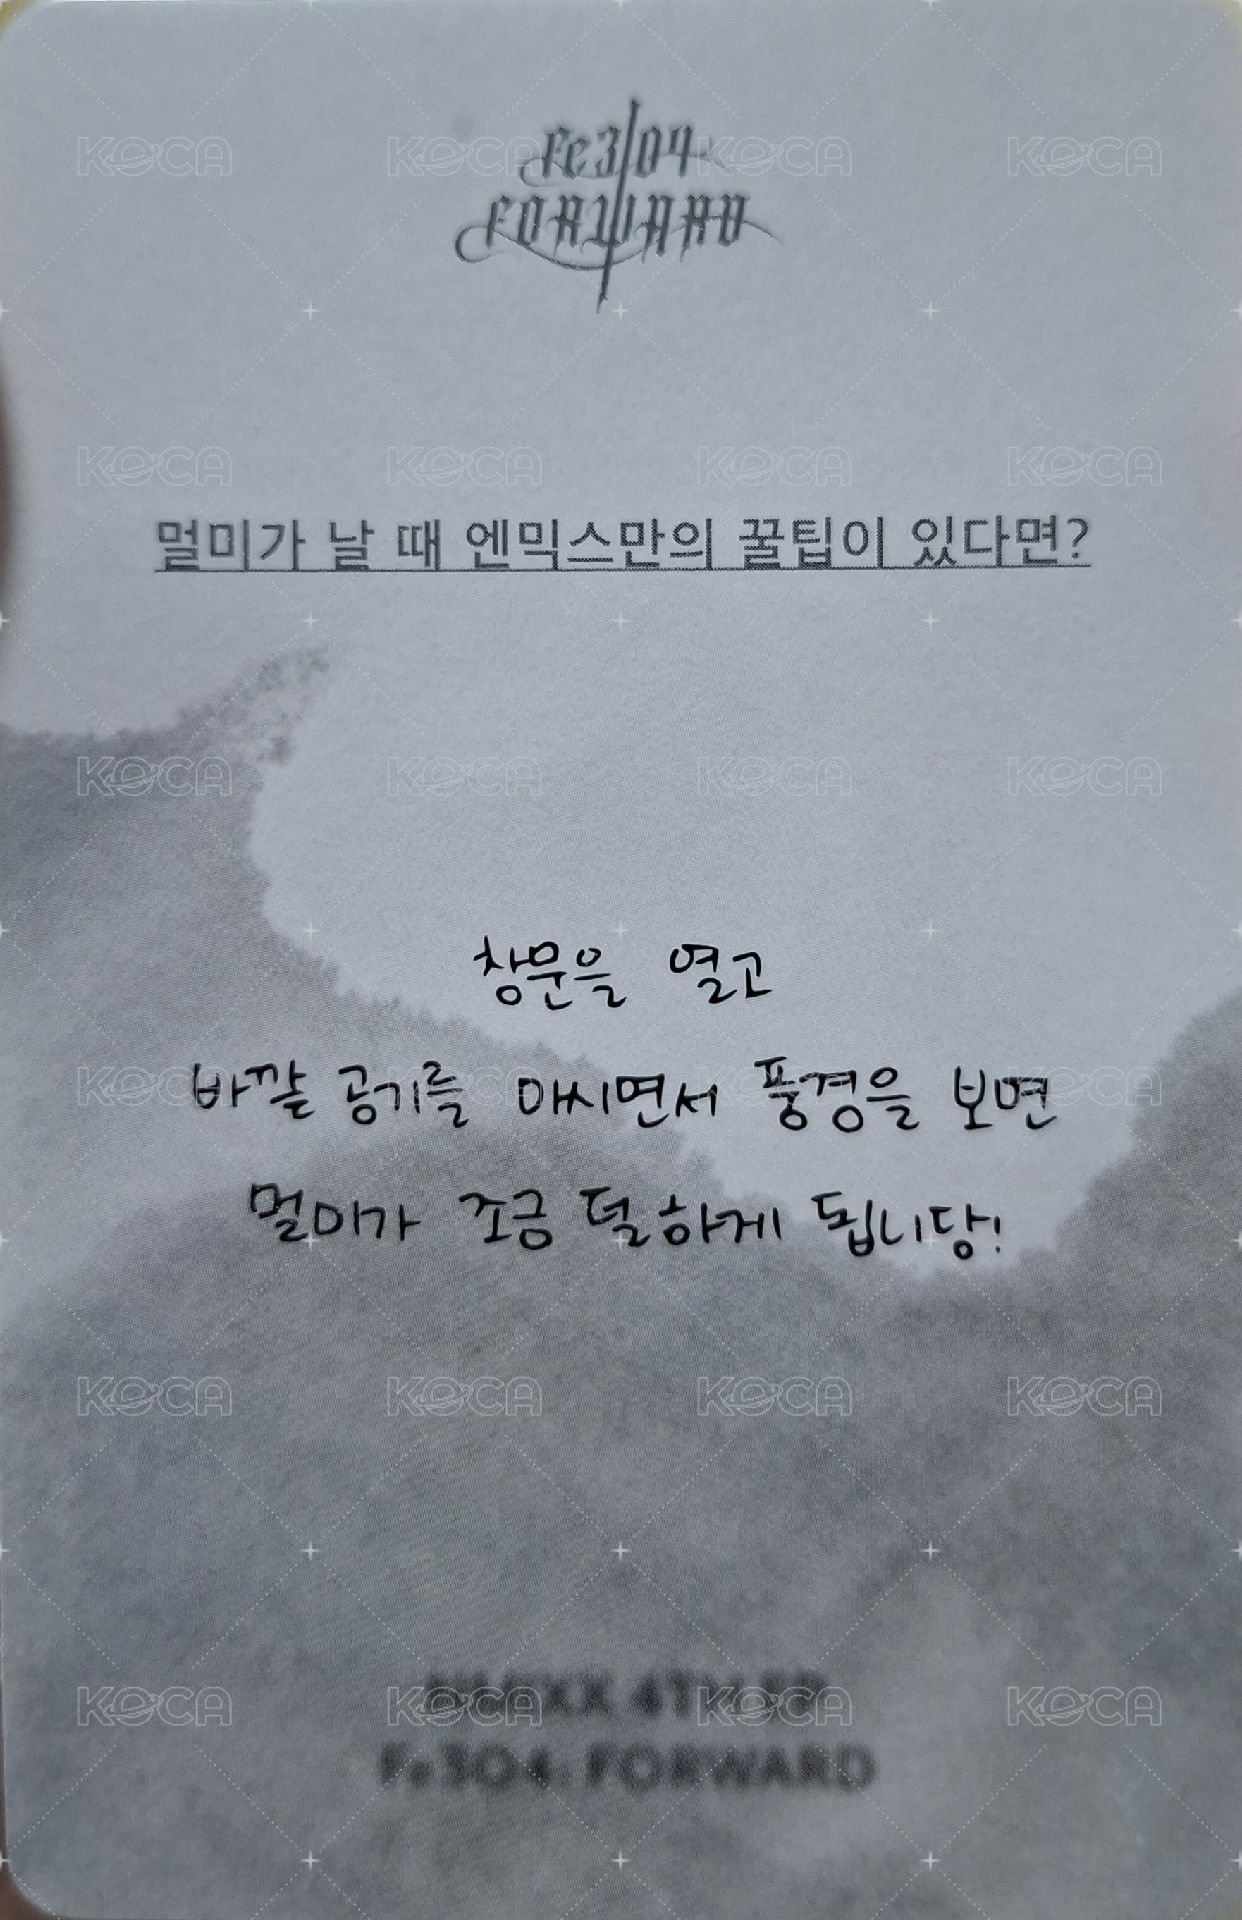 Fe3O4
FORWARD
멀미가 날 때 엔믹스만의 꿀팁이 있다면?
창문을 열고
바깥 공기를 마시면서 풍경을 보면
멀미가 조금 덜 하게 됩니당!
NMIXX 4TH EP
Fe3O4: FORWARD
KOCA